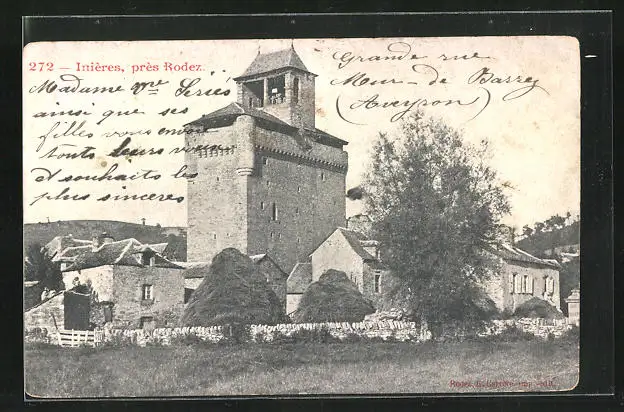 272 — Inières, près Rodez.
Madame Vve Seriès
ainsi que ses
filles vous envoient
touts leurs vœux
et souhaits les
plus sincères
Grande rue
Mur-de-Barrez
(Aveyron)
Rodez,